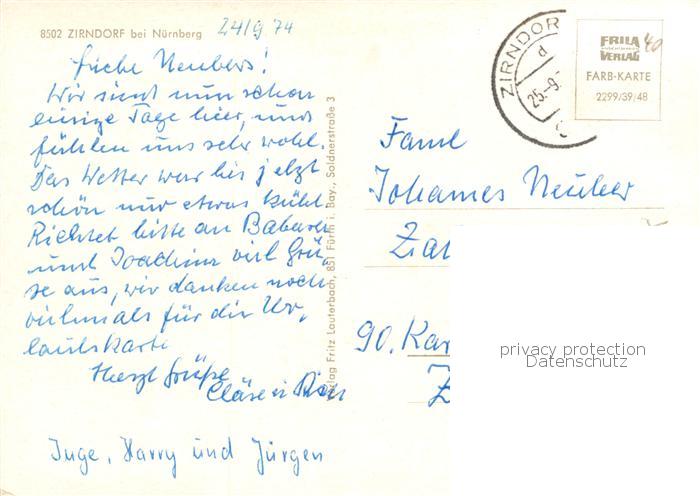 8502 ZIRNDORF bei Nürnberg 24/9 74
Liebe Neubers!
Wir sind nun schon
einige Tage hier, und
fühlen uns sehr wohl.
Das Wetter war bis jetzt
schön nur etwas kühl.
Richtet bitte an
und Joachim viel Grü-
se aus, wir danken noch
vielmals für die Ur,
laubskarte
Herzl Grüße
Inge, Harry und Jürgen
Verlag Fritz Lauterbach, 851 Fürth i. Bay., Soldnerstraße 3
ZIRNDOR
d
25.-9.
FRILA
VERLAG
40
FARB-KARTE
2299/39/48
Faml
Johannes Neuber
90. Kar
privacy protection
Datenschutz